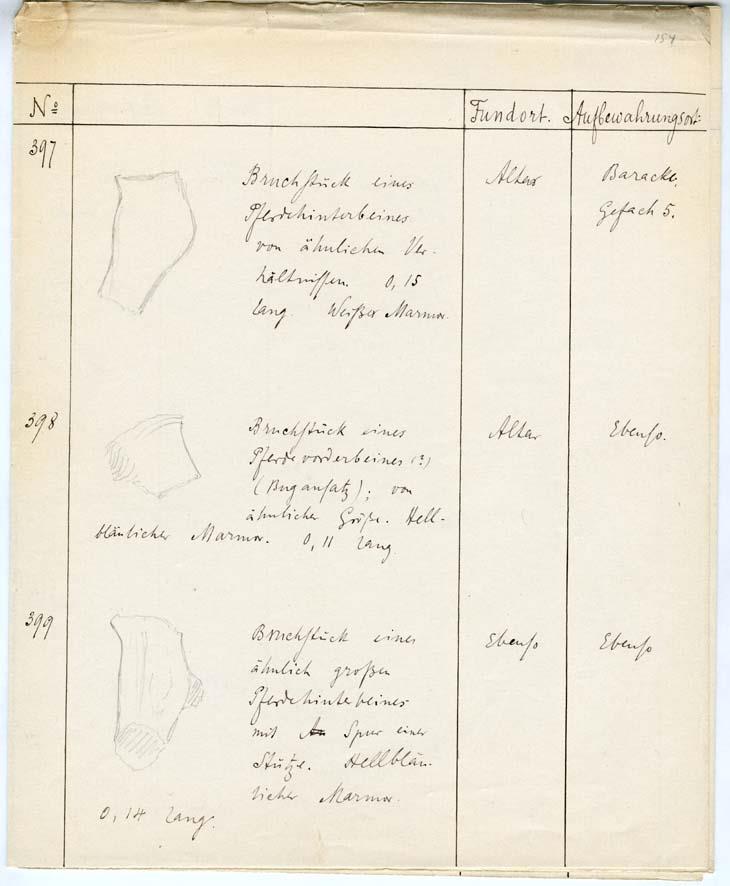 154
No Fundort. Aufbewahrungsort:
397
Bruchstück eines
Pferdehinterbeines
von ähnlichen Ver-
hältnissen. 0,15
lang. Weißer Marmor.
Altar
Baracke,
Gefach 5.
398
Bruchstück eines
Pferdevorderbeines (?)
(Bugansatz); von
ähnlicher Größe. Hell-
bläulicher Marmor. 0,11 lang
Altar
Ebenso.
399
Bruchstück eines
ähnlich großen
Pferdehinterbeines
mit Spur einer
Stütze. Hellbläu-
licher Marmor.
0,14 lang.
Ebenso
Ebenso